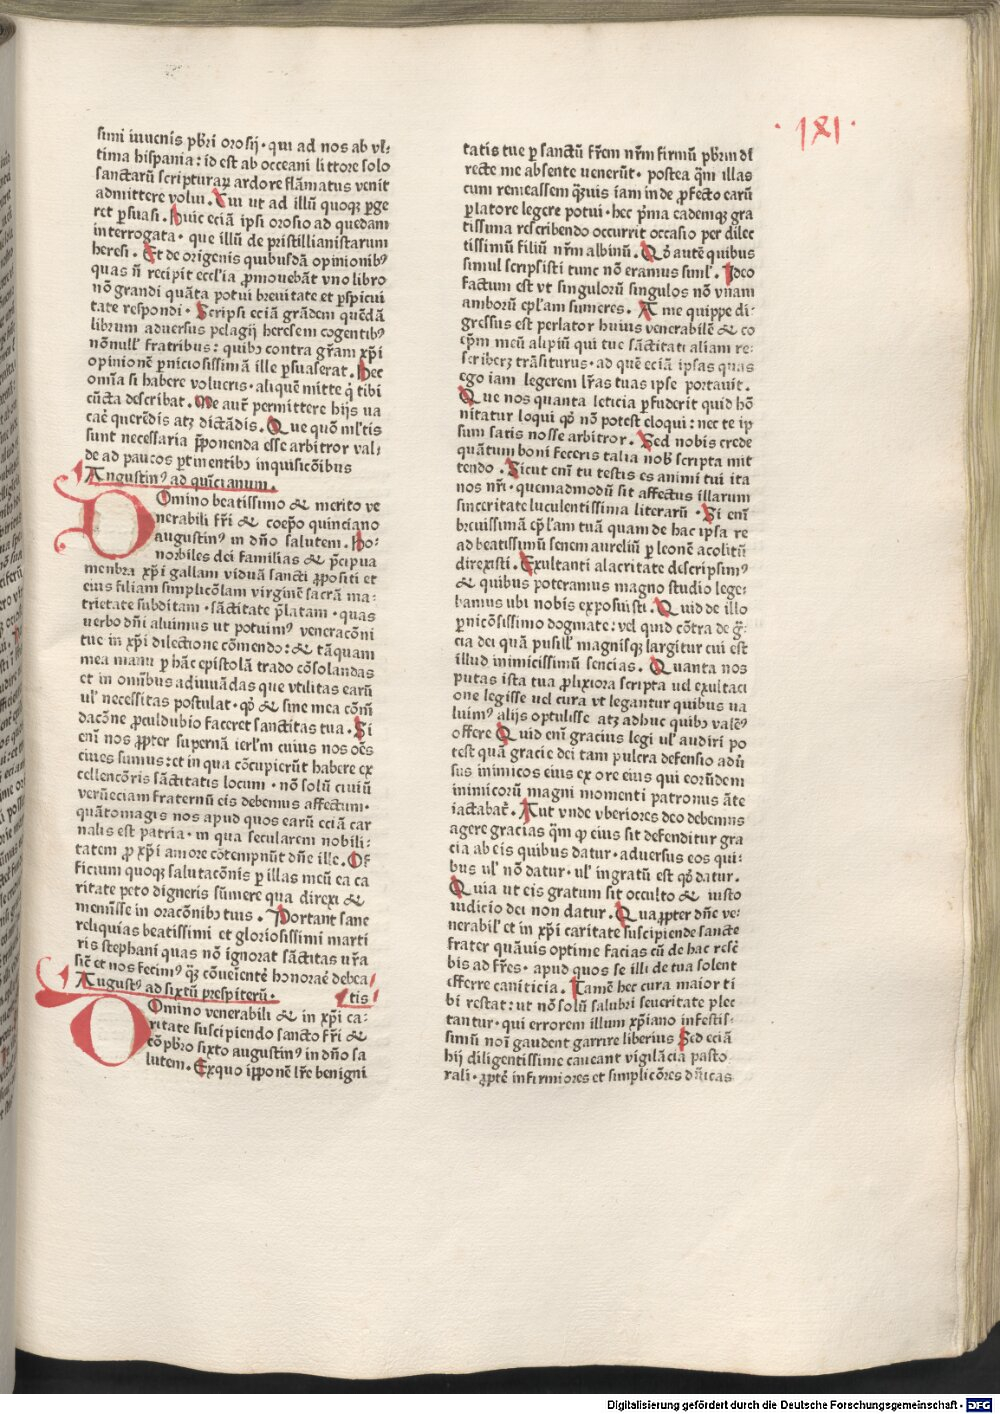 · lxi ·
simi iuuenis pb̄ri orosij · qui ad nos ab vl-
tima hispania: id est ab occeani littore solo
sanctarū scripturaꝝ ardore flāmatus venit
admittere volui. Cui ut ad illū quoqꝫ ꝑge
ret ꝑsuasi. Huic eciā ipsi orosio ad quedam
interrogata · que illū de pristillianistarum
heresi. Et de origenis quibusdā opinionibꝰ
quas n̄ recipit eccl'ia ꝓmouebāt vno libro
nō grandi quāta potui breuitate et ꝑspicui
tate respondi. Scripsi eciā grādem quēdā
librum aduersus pelagij heresem cogentibꝰ
nōnull' fratribus: quibꝫ contra gr̄am xp̄i
opinionē ꝑniciosissimā ille ꝑsuaserat. Hec
om̄ia si habere volueris · aliquē mitte q' tibi
cūcta describat. Me aut̄ permittere hijs ua
care querēdis atqꝫ dictādis. Que quō ml'tis
sunt necessaria p̄ponenda esse arbitror val-
de ad paucos ꝑtinentibꝫ inquisicōibus
Augustinꝰ ad quīcianum.
Domino beatissimo & merito ve
nerabili fr̄i & coep̄o quinciano
augustinꝰ in dn̄o salutem. Ho-
norbiles dei familias & p̄cipua
menbra xp̄i gallam viduā sancti ꝓpositi et
eius filiam simplicōlam virginē sacrā ma-
trietate subditam · sāctitate p̄latam · quas
uerbo dn̄i aluimus ut potuimꝰ veneracōni
tue in xp̄i dilectione cōmendo: & tāquam
mea manu ꝑ hāc epistolā trado cōsolandas
et in omībus adiuuādas que vtilitas earū
ul' necessitas postulat · qd' & sine mea cōm̄
dacōne ꝓculdubio faceret sanctitas tua. Si
enī nos ꝓpter supernā ierl'm cuius nos oēs
ciues sumus: et in qua cōcupierūt habere ex
cellencōris sāctitatis locum · nō solū ciuiū
verū eciam fraternū eis debemus affectum ·
quātomagis nos apud quos earū eciā car
nalis est patria · in qua secularem nobili-
tatem ꝓ xp̄i amore cōtempnūt dn̄e ille. Of
ficium quoqꝫ salutacōnis ꝑ illas meū ea ca
ritate peto digneris sūmere qua direxi &
memīsse in oracōnibꝫ tuis. Portant sane
reliquias beatissimi et gloriosissimi marti
ris stephani quas nō ignorat sāctitas ur̄a
sic̄ et nos fecimꝰ qꝫ cōueniente honorae debea
tis
Augustꝰ ad sixtū prespiterū.
Domino venerabili & in xp̄i ca-
ritate suscipiendo sancto fr̄i &
cōpb̄ro sixto augustinꝰ in dn̄o sa
lutem. Exquo ipponē lr̄e benigni
tatis tue ꝑ sanctū fr̄em nr̄m firmū pb̄rm dl'
recte me absente uenerūt · postea q̄m illas
cum remeassem q̄uis iam inde ꝓfecto earū
ꝑlatore legere potui · hec p̄ma eademqꝫ gra
tissima rescribendo occurrit occasio per dilec
tissimū filiū nr̄m albinū. Qd' autē quibus
simul scripsisti tunc nō eramus simul'. Ideo
factum est vt singulorū singulos nō vnam
amborū ep̄l'am sumeres. A me quippe di-
gressus est perlator huius venerabilē & co
ep̄m meū alipiū qui tue sāctitati aliam re-
scriberꝫ trāsiturus · ad quē eciā ipsas quas
ego iam legerem lr̄as tuas ipse portauit.
Que nos quanta leticia ꝑfuderit quid hō
nitatur loqui qd' nō potest eloqui: nec te ip
sum satis nosse arbitror. Sed nobis crede
quātum boni feceris talia nob' scripta mit
tendo. Sicut enī tu testis es animi tui ita
nos nr̄i · quemadmodū sit affectus illarum
sinceritate luculentissima literarū. Si enī
breuissimā ep̄l'am tuā quam de hac ipsa re
ad beatissimū senem aureliū ꝑ leonē acolitū
direxisti. Exultanti alacritate descripsimꝰ
& quibus poteramus magno studio lege-
bamus ubi nobis exposuisti. Quid de illo
ꝑnicōsissimo dogmate: vel quid cōtra de gr̄-
cia dei quā pusill' magnisqꝫ largitur cui est
illud inimicissimū sencias. Quanta nos
putas ista tua ꝓlixiora scripta uel exultaci
one legisse uel cura vt legantur quibus ua
luimꝰ alijs optulisse atqꝫ adhuc quibꝫ valēꝰ
offere Quid enī gracius legi ul' audiri po
test quā gracie dei tam pulcra defensio adū
sus inimicos eius ex ore eius qui eorūdem
inimicorū magni momenti patronus āte
iactabat'. Aut vnde vberiores deo debemus
agere gracias q̄m ꝙ eius sit defenditur gra
cia ab eis quibus datur · aduersus eos qui-
bus ul' nō datur · ul' ingratū est qd' datur.
Quia ut eis gratum sit occulto & iusto
iudicio dei non datur. Quaꝓpter dn̄e ve-
nerabil' et in xp̄i caritate suscipiende sancte
frater quāuis optime facias cū de hac resc̄
bis ad fr̄es · apud quos se illi de tua solent
efferre caniticia. Tamē hec cura maior ti
bi restat: ut nō solū salubri seueritate plec
tantur · qui errorem illum xp̄iano infestis-
simū noī gaudent garrire liberius Sed eciā
hij diligentissime caueant vigilācia pasto
rali · ꝓpt' infirmiores et simplicōres dn̄icas
Digitalisierung gefördert durch die Deutsche Forschungsgemeinschaft - DFG